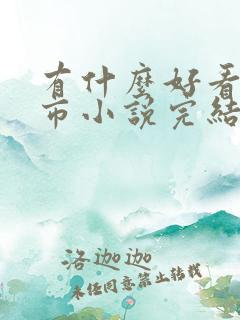 有什麼好看
市小說完結
洛迦迦
未經同意禁止轉載